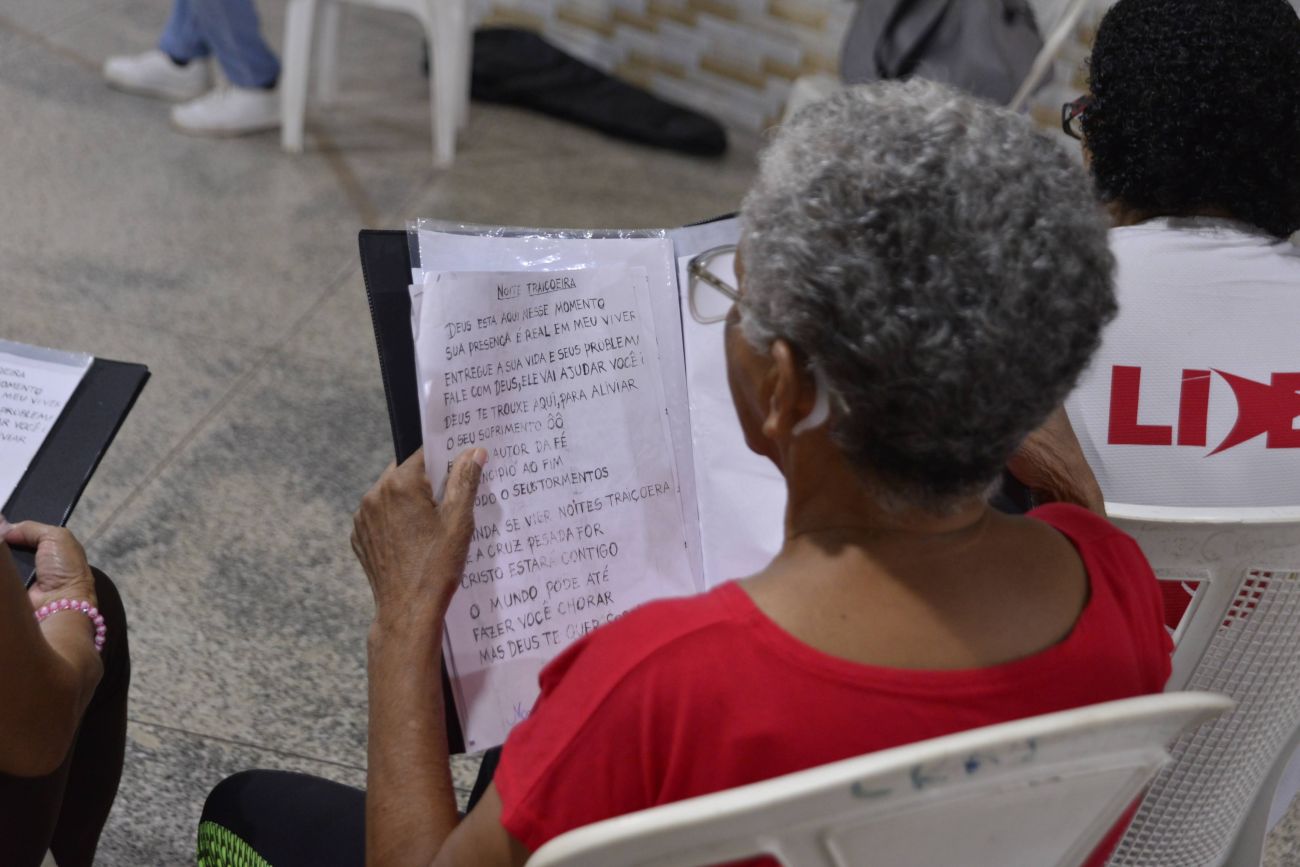 NOITE TRAIÇOEIRA
DEUS ESTA AQUI NESSE MOMENTO
SUA PRESENÇA É REAL EM MEU VIVER
ENTREGUE A SUA VIDA E SEUS PROBLEM
FALE COM DEUS, ELE VAI AJUDAR VOCÊ
DEUS TE TROUXE AQUI, PARA ALIVIAR
O SEU SOFRIMENTO ÔÔ
AUTOR DA FÉ
AO FIM
O SEUS TORMENTOS
SE VIER NOITES TRAIÇOERA
A CRUZ PESADA FOR
CRISTO ESTARÁ CONTIGO
O MUNDO PODE ATÉ
FAZER VOCÊ CHORAR
MAS DEUS TE QUER
MEU VIVER